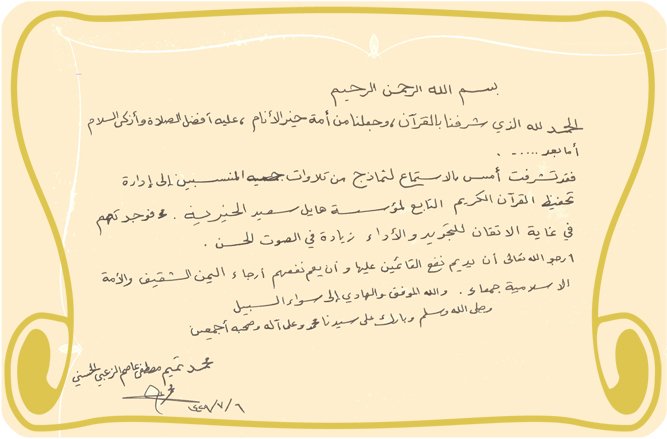 بسم الله الرحمن الرحيم
الحمد لله الذي شرفنا بالقرآن، وجعلنا من أمة خير الأنام، عليه أفضل الصلاة وأزكى السلام
أما بعد .....
فقد تشرفت أمس بالاستماع لنماذج من تلاوات المنتسبين إلى إدارة
تحفيظ القرآن الكريم التابع لمؤسسة هايل سعيد الخيرية . فوجدتهم
في غاية الاتقان للتجويد والأداء زيادة في الصوت الحسن .
أرجو الله تعالى أن يديم نفع القائمين عليها وأن يعم نفعهم أرجاء اليمن الشقيق والأمة
الاسلامية جمعاء . والله الموفق والهادي إلى سواء السبيل
وصلى الله وسلم وبارك على سيدنا محمد وعلى آله وصحبه أجمعين
محمد تميم مصطفى عاصم الزعبي الحسني
١٤٢٩/٧/٦